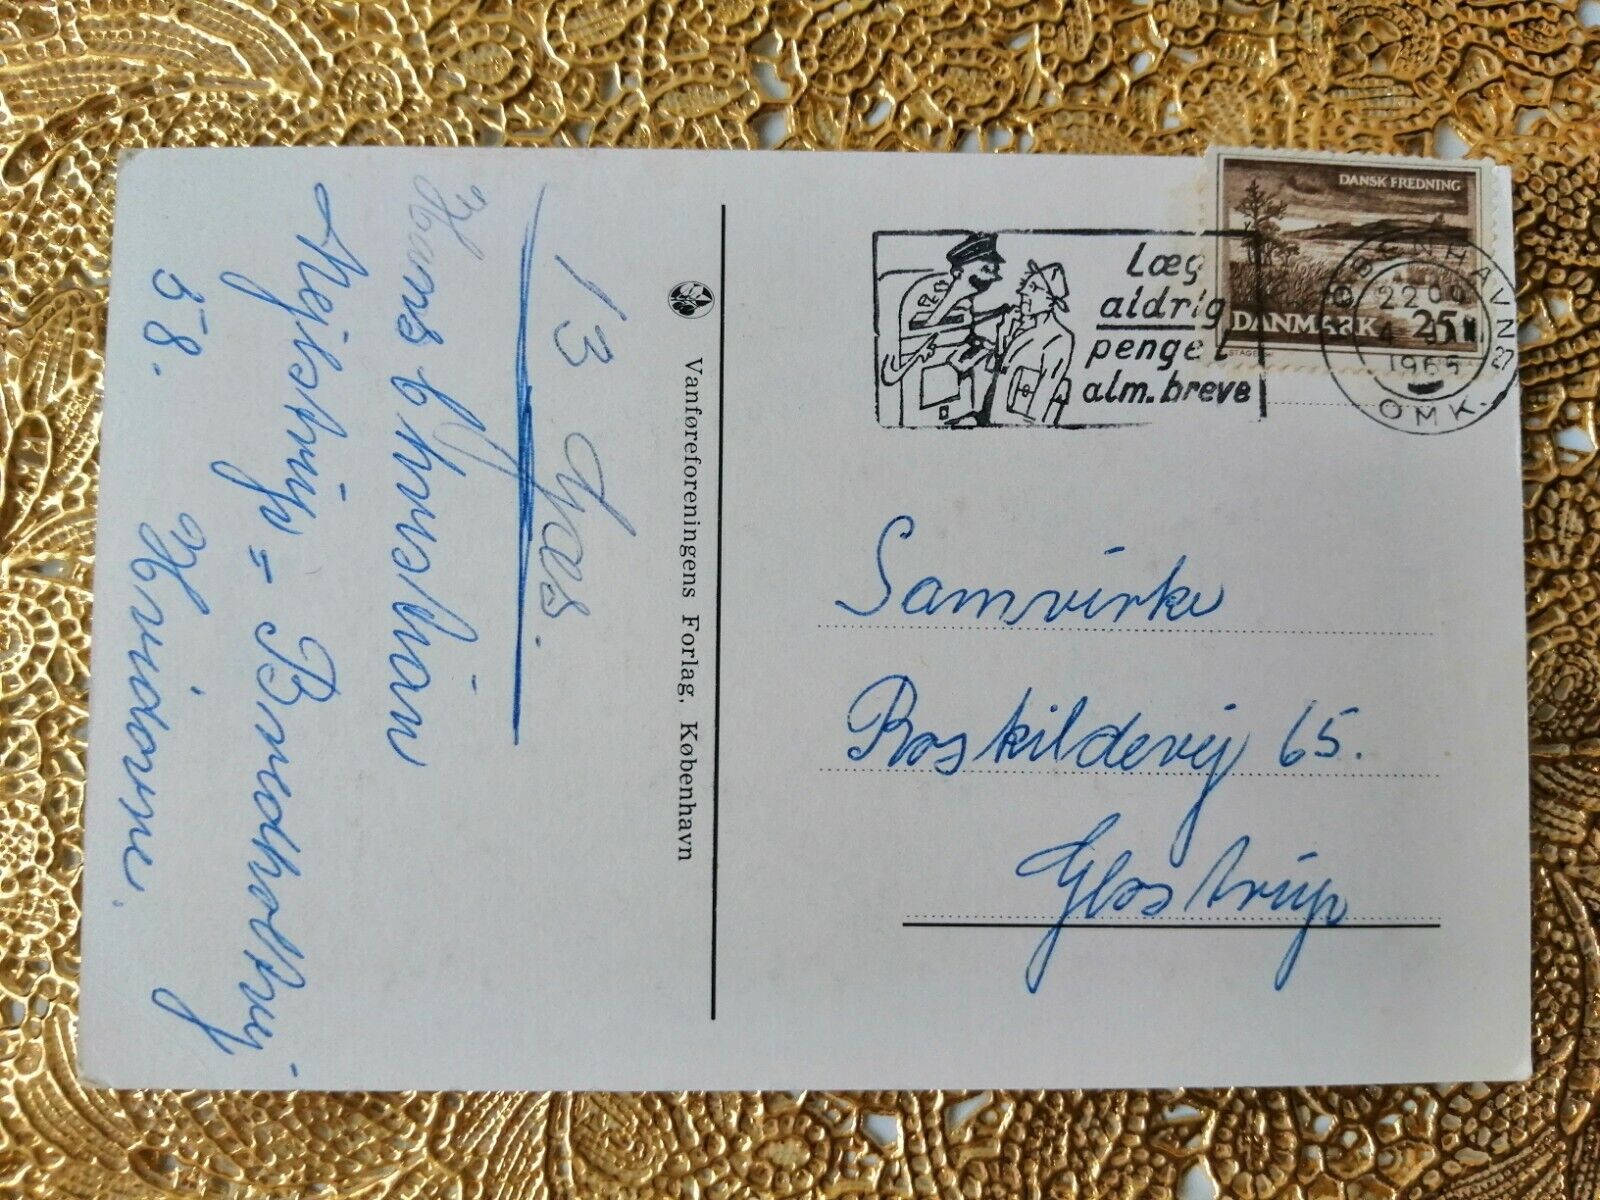 13 Gæs.
Hans Christian
Bredholtvej
58. Hvidovre.
Vanføreforeningens Forlag, København
Læg
aldrig
penge i
alm. breve
DANSK FREDNING
DANMARK 25
KØBENHAVN 27
22 00
1965
OMK.
Samvirke
Roskildevej 65.
Glostrup